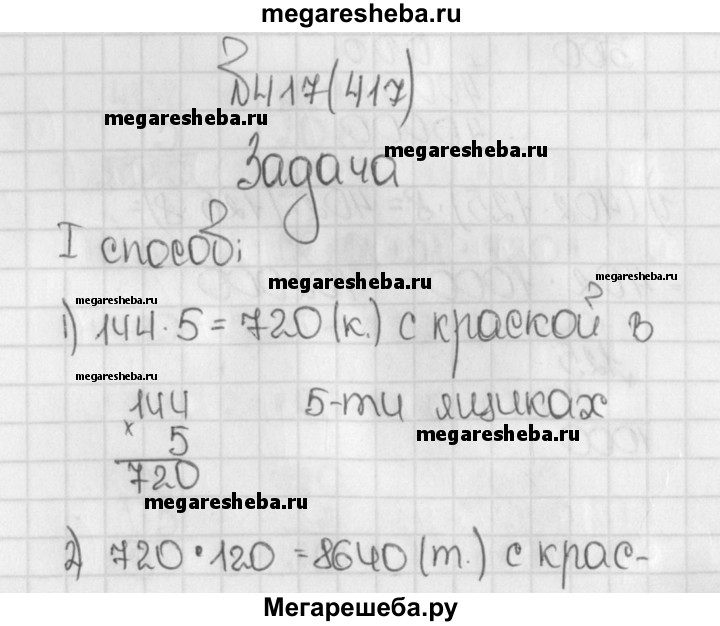 megaresheba.ru
№417(417)
megaresheba.ru
megaresheba.ru
Задача
I способ:
megaresheba.ru
megaresheba.ru
megaresheba.ru
1) 144·5=720(к.) с краской в
megaresheba.ru
144 5-ти ящиках
× 5
megaresheba.ru
720
megaresheba.ru
2) 720·120=8640(т.) с крас-
Мегарешеба.ру